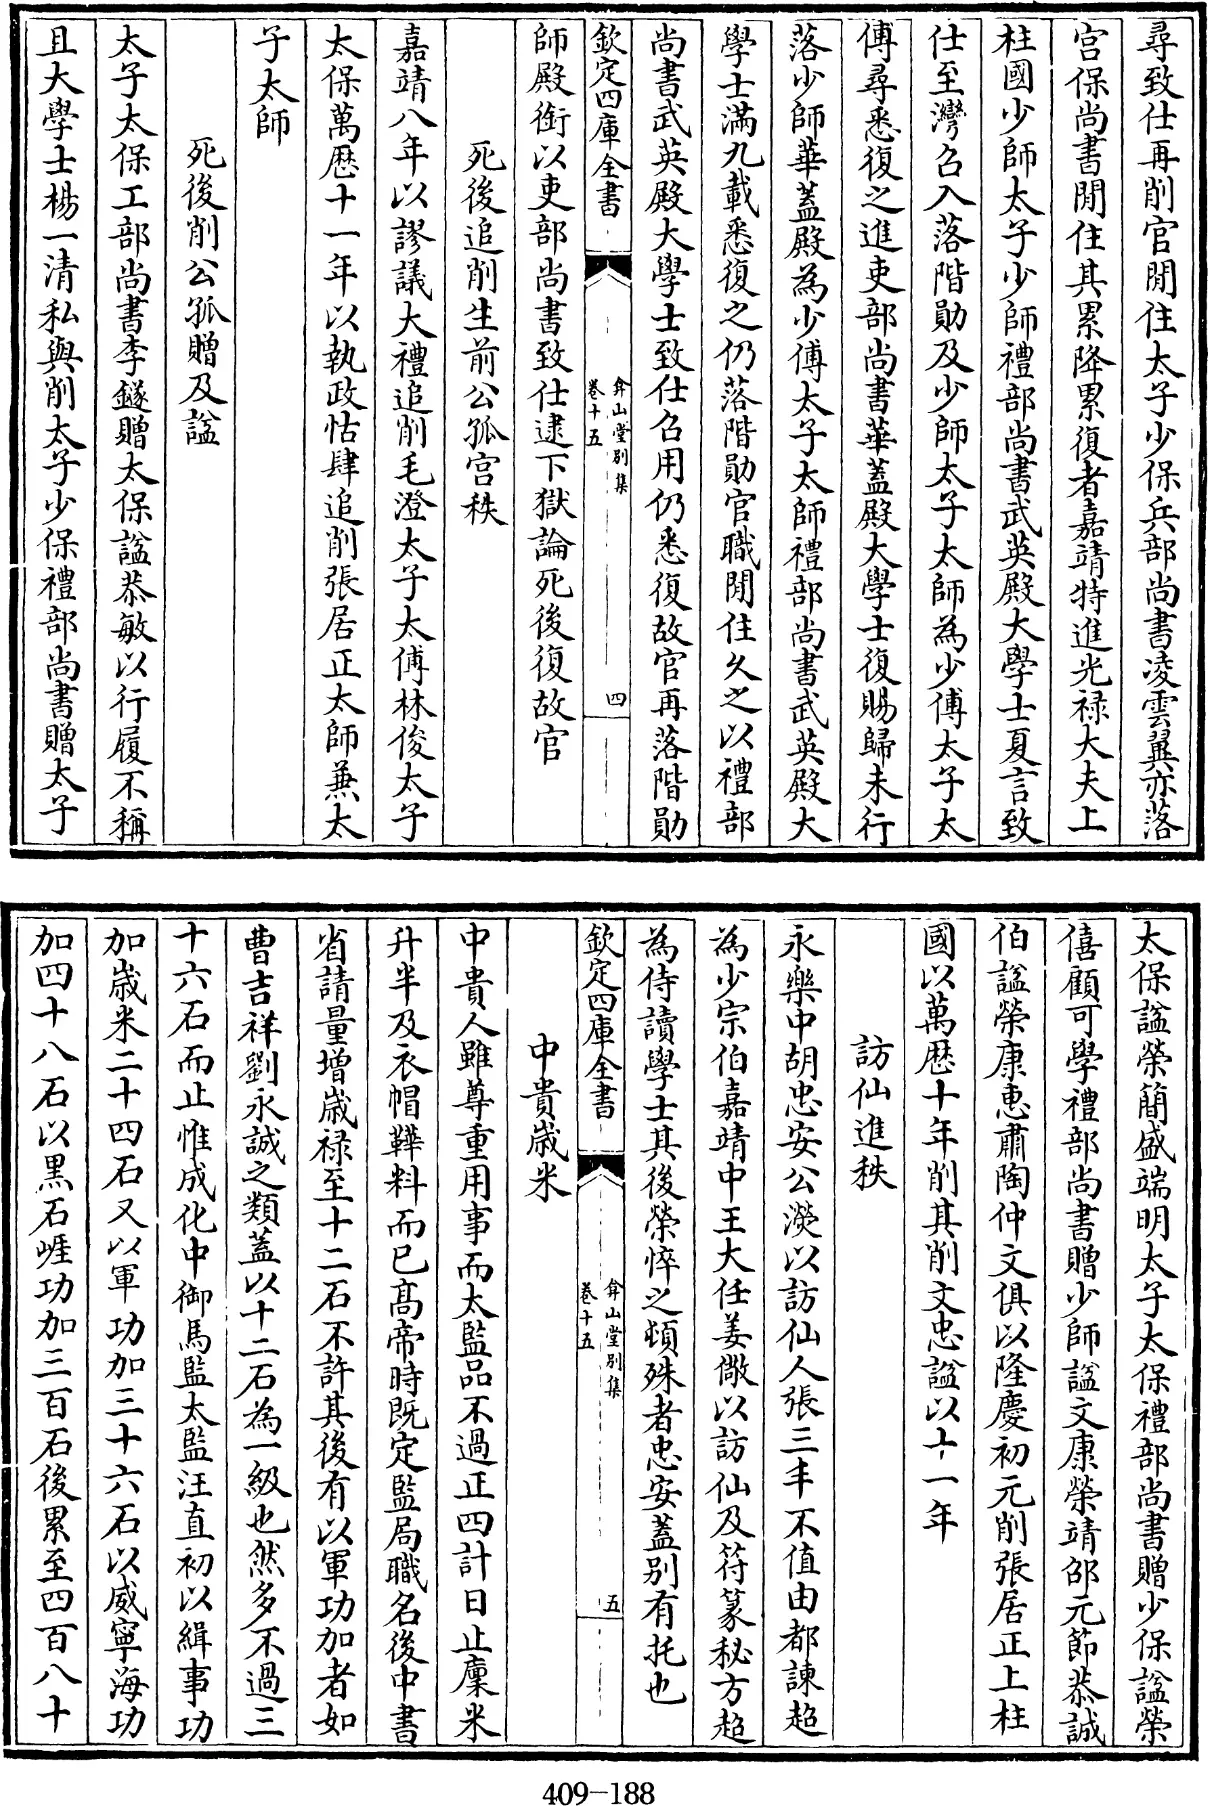 尋致仕再削官閒住太子少保兵部尚書凌雲翼亦落
宫保尚書閒住其累降累復者嘉靖特進光禄大夫上
柱國少師太子少師禮部尚書武英殿大學士夏言致
仕至灣召入落階勛及少師太子太師為少傅太子太
傅尋悉復之進吏部尚書華蓋殿大學士復賜歸未行
落少師華蓋殿為少傅太子太師禮部尚書武英殿大
學士滿九載悉復之仍落階勛官職閒住久之以禮部
尚書武英殿大學士致仕召用仍悉復故官再落階勛
欽定四庫全書
弇山堂别集
卷十五
四
師殿銜以吏部尚書致仕逮下獄論死後復故官
死後追削生前公孤宫秩
嘉靖八年以謬議大禮追削毛澄太子太傅林俊太子
太保萬厯十一年以執政怙肆追削張居正太師兼太
子太師
死後削公孤贈及諡
太子太保工部尚書李鐩贈太保諡恭敏以行履不稱
且大學士楊一清私與削太子少保禮部尚書贈太子
太保諡榮簡盛端明太子太保禮部尚書贈少保諡榮
僖顧可學禮部尚書贈少師諡文康榮靖邵元節恭誠
伯諡榮康惠肅陶仲文俱以隆慶初元削張居正上柱
國以萬厯十年削其削文忠諡以十一年
訪仙進秩
永樂中胡忠安公濙以訪仙人張三丰不值由都諫超
為少宗伯嘉靖中王大任姜儆以訪仙及符篆秘方超
為侍讀學士其後榮悴之頓殊者忠安蓋别有托也
欽定四庫全書
弇山堂别集
卷十五
五
中貴歲米
中貴人雖尊重用事而太監品不過正四計日止廩米
升半及衣帽鞾料而已髙帝時既定監局職名後中書
省請量增歲禄至十二石不許其後有以軍功加者如
曹吉祥劉永誠之類蓋以十二石為一級也然多不過三
十六石而止惟成化中御馬監太監汪直初以緝事功
加歲米二十四石又以軍功加三十六石以威寧海功
加四十八石以黑石崕功加三百石後累至四百八十
409-188